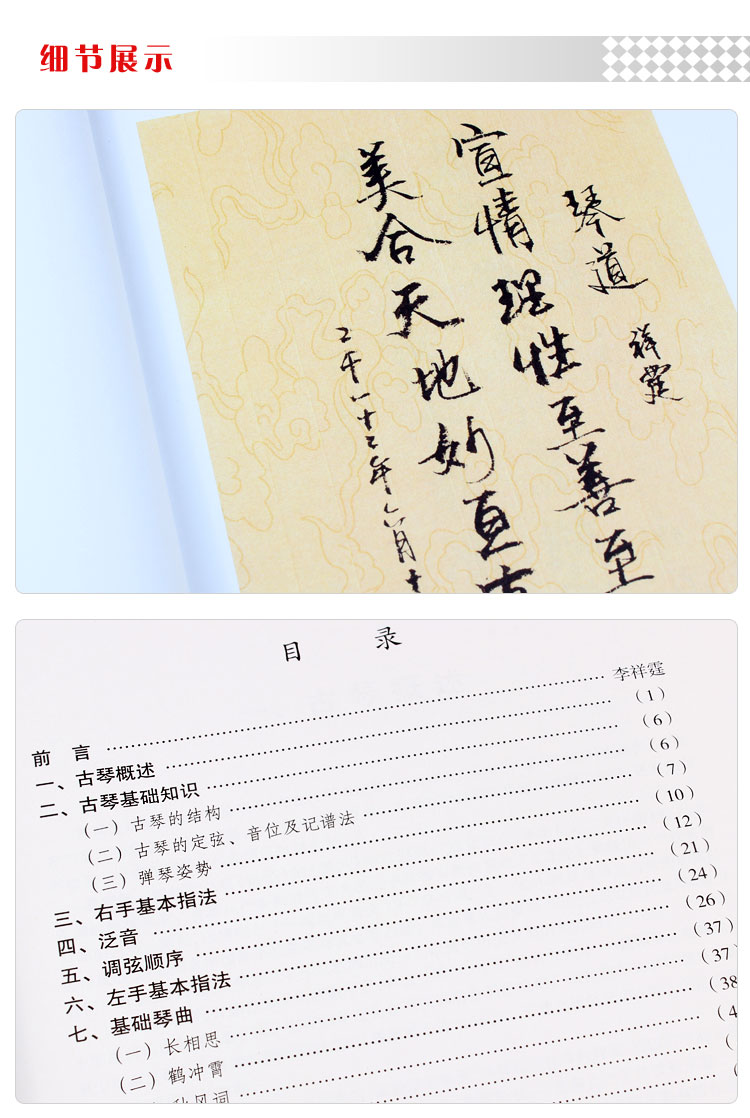 细节展示
琴道 祥霆
宣情理性至善至
美合天地妙直
年六月十
目 录
前 言 …… 李祥霆
一、古琴概述 …… （1）
二、古琴基础知识 …… （6）
（一）古琴的结构 …… （6）
（二）古琴的定弦、音位及记谱法 …… （7）
（三）弹琴姿势 …… （10）
三、右手基本指法 …… （12）
四、泛音 …… （21）
五、调弦顺序 …… （24）
六、左手基本指法 …… （26）
七、基础琴曲 …… （37）
（一）长相思 …… （37）
（二）鹤冲霄 …… （38
秋风词 …… （4